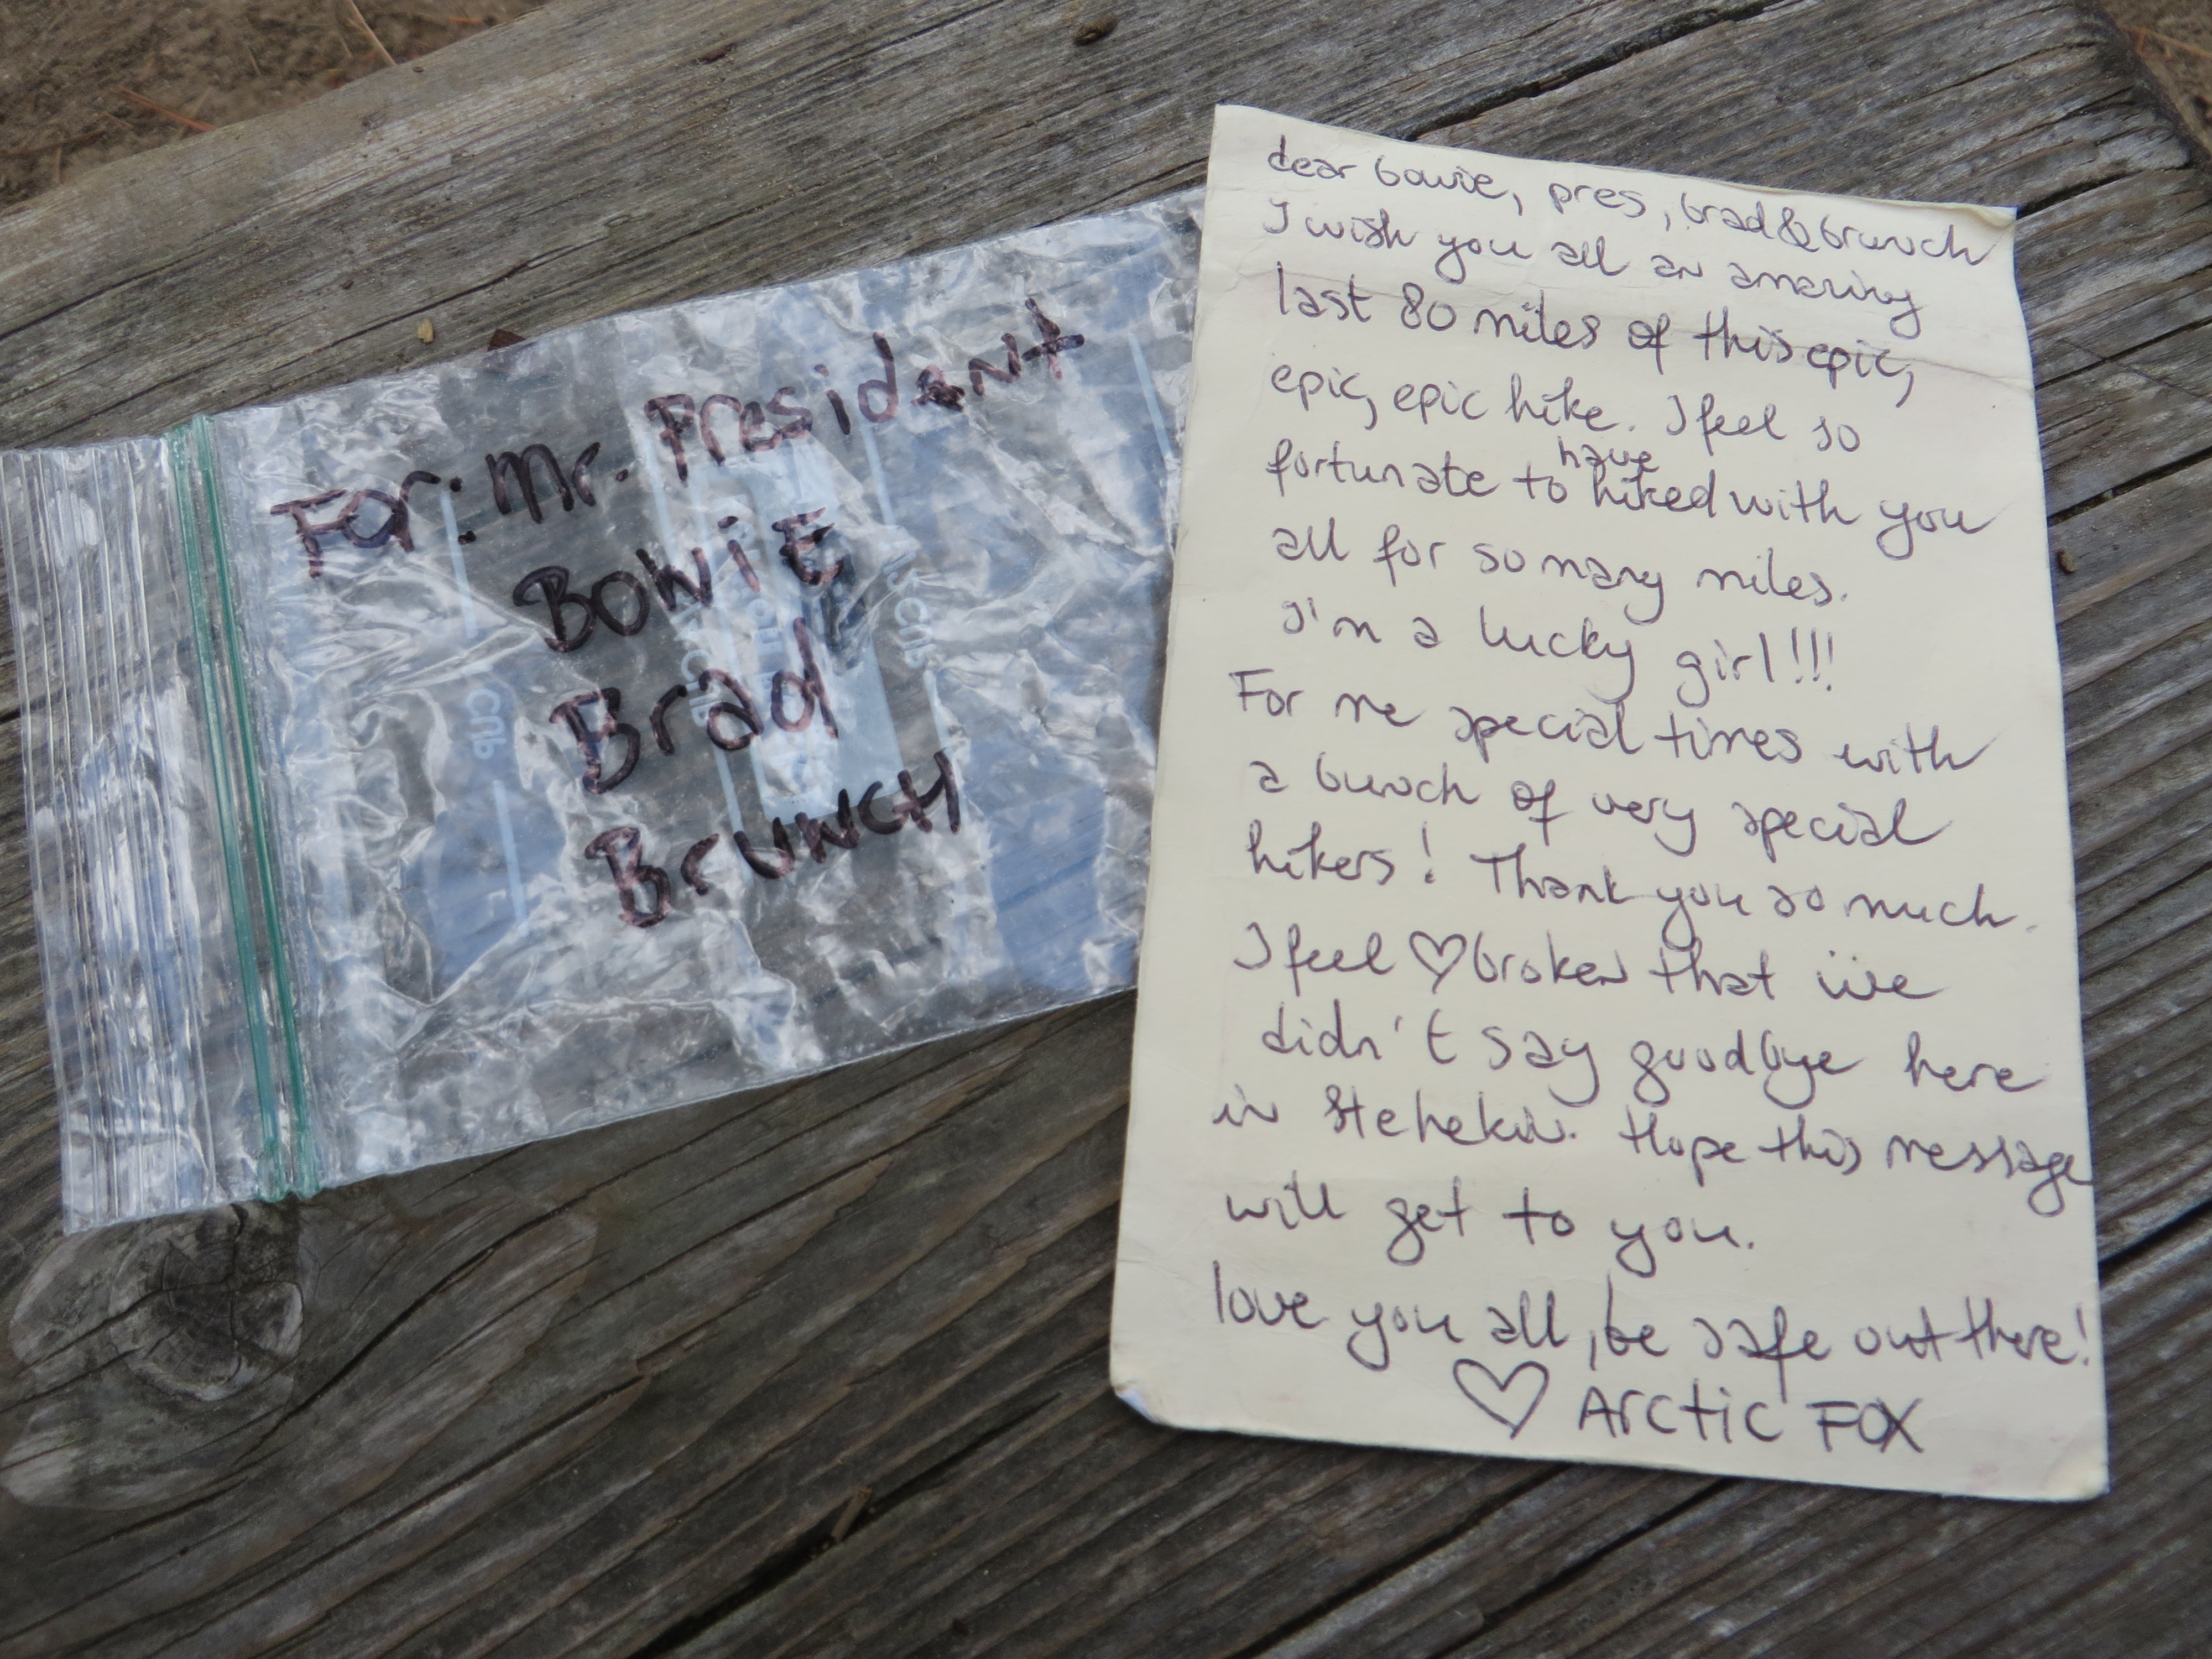 For: Mr. President
BOWiE
Brad
BrUNCH
dear bowie, pres, brad & brunch
I wish you all an amazing
last 80 miles of this epic,
epic, epic hike. I feel so
fortunate to have hiked with you
all for so many miles.
I'm a lucky girl!!!
For me special times with
a bunch of very special
hikers! Thank you so much.
I feel ♡broken that we
didn't say goodbye here
in Stehekin. Hope this message
will get to you.
love you all, be safe out there!
♡ Arctic FOX